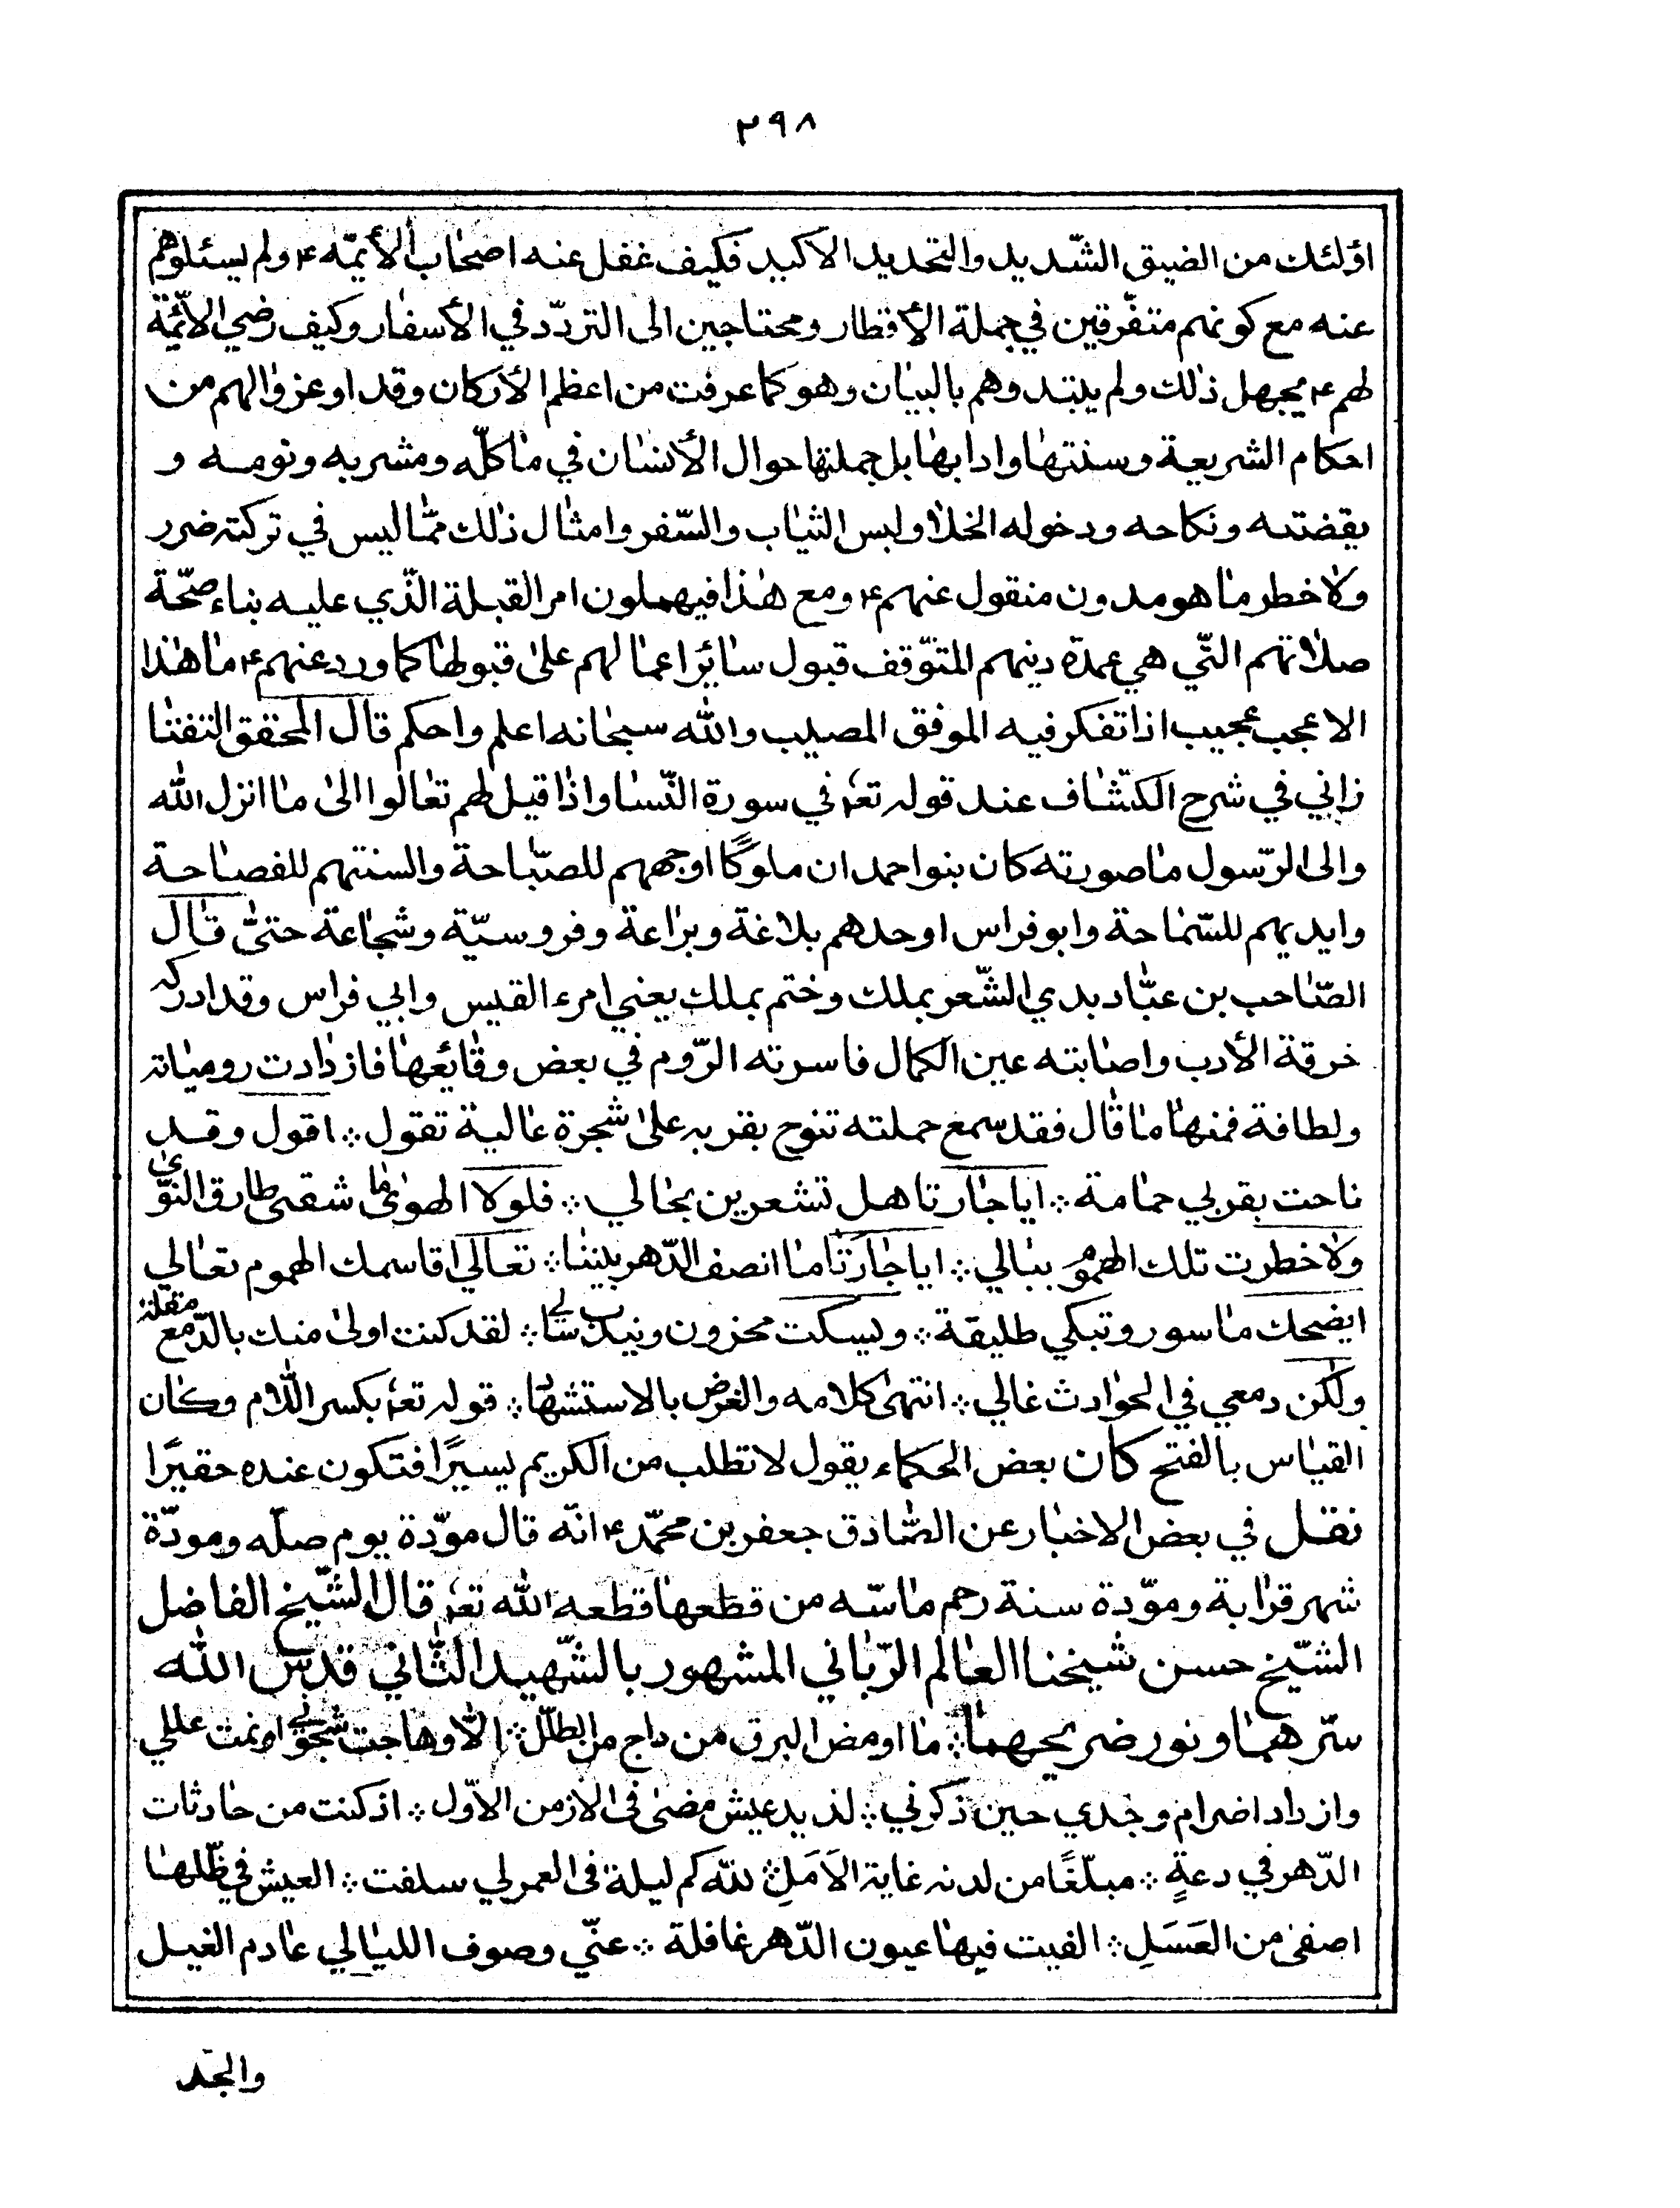 ٢٩٨
اؤلئك من الضيق الشّديد والتحديد الاكيد فكيف غفل عنه اصحاب الأيمّه ع ولم يسئلوهم
عنه مع كونهم متفّرقين في جملة الأقطار ومحتاجين الى التردّد في الأسفار وكيف رضي الأئمّة
لهم ع بجهل ذلك ولم يبتدوهم بالبيان وهو كما عرفت من اعظم الأركان وقد اوعزوا الهم من
احكام الشريعة وسنتها وادابها بل جملتها حوال الأنسان في ماكلّه ومشربه ونومه و
يقضته ونكاحه ودخوله الخلا ولبس الثياب والسّفر وامثال ذلك ممّا ليس في تركته ضرر
ولا خطر ما هو مدون منقول عنهم ع ومع هذا فيهملون امر القبلة الذّي عليه بناء صحّة
صلاتهم التّي هي عمدة دينهم المتوّقف قبول سائر اعمالهم على قبولها كما ورد عنهم ع ما هذا
الا عجب عجيب اذا تفكر فيه الموفق المصيب والله سبحانه اعلم واحكم قال المحقق التفتا
زاني في شرح الكشّاف عند قوله تعم في سورة النّسا واذا قيل لهم تعالوا الى ما انزل الله
والى الرّسول ما صورته كان بنوا حمدان ملوكًا اوجههم للصّباحة والسنتهم للفصاحة
وايديهم للسّماحة وابو فراس اوحدهم بلاغة وبراعة وفروسيّة وشجاعة حتىّ قال
الصّاحب بن عبّاد بدي الشّعر بملك وختم بملك يعني امرء القيس وابي فراس وقد ادركه
خرقة الأدب واصابته عين الكمال فاسرته الرّوم في بعض وقائعها فازدادت روميّاته
ولطافة فمنها ما قال فقد سمع حملته تنوح بقربه على شجرة عالية تقول ؞ اقول وقد
ناحت بقربي حمامة ؞ ايا جارتا هل تشعرين بحالي ؞ فلولا الهوى ما شقى طارق النوّى
ولا خطرت تلك الهموم ببالي ؞ ايا جارتا ما انصف الدّهر بيننا ؞ تعالي اقاسمك الهموم تعالي
ايضحك ماسور وتبكي طليقة ؞ ويسكت محزون ويندب سالي ؞ لقد كنت اولى منك بالدّمع مقلة
ولكن دمعي في الحوادث غالي ؞ انتهى كلامه والغرض بالاستشهاد ؞ قوله تعم بكسر اللام وكان
القياس بالفتح كان بعض الحكماء يقول لا تطلب من الكريم يسيرًا فتكون عنده حقيرًا
نقل في بعض الاخبار عن الصّادق جعفر بن محمّد ع انّه قال مودّة يوم صلّه ومودّة
شهر قرابة ومودّة سنة رحم ماسّه من قطعها قطعه الله تعم قال الشّيخ الفاضل
الشّيخ حسن شيخنا العالم الرّباني المشهور بالشّهيد الثّاني قدس الله
سرّهما ونور ضريحهما ؞ ما اومض البرق من داج من الطلّل ؞ الّا وهاجت شجوني او نمت عللي
وازداد اضرام وجدي حين ذكرني ؞ لذيد عيش مضى فى الأزمن الأوّل ؞ اذ كنت من حادثات
الدّهر في دعةٍ ؞ مبلّغًا من لدنه غاية الاَمَلِ ؞ لله كم ليلة فى العمر لي سلفت ؞ العيش في ظلّها
اصفى من العَسَلِ ؞ الفيت فيها عيون الدّهر غافلة ؞ عنّي وصوف الليالي عادم الغيل
والجّد